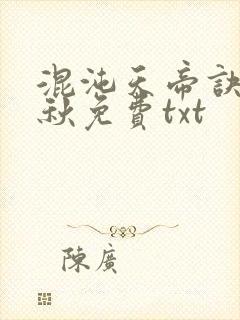 混沌天帝訣
秋免費txt
陳廣